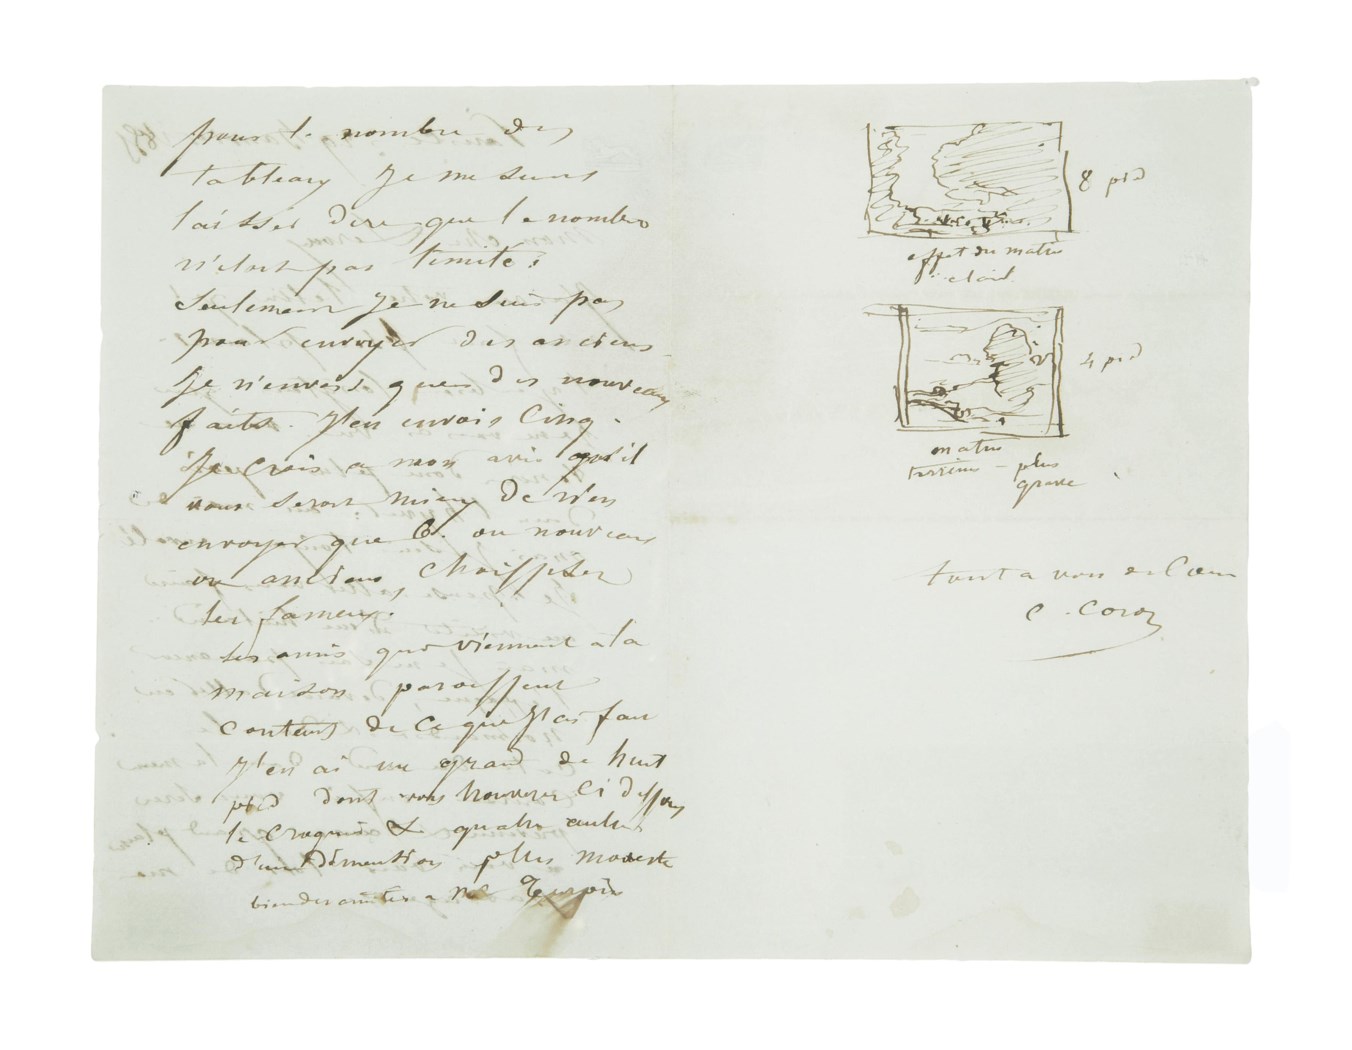 pour le nombre des
tableaux je me suis
laissé dire que le nombre
n'etait pas limité :
seulement je ne suis pas
pour envoyer des anciens
je n'envois que des nouveaux
faits. j'en envois cinq.
je crois a mon avis qu'il
vous serait mieux de n'en
envoyer que 6. ou nouveaux
ou anciens, choissisez
les fameux.
les amis qui viennent a la
maison paroissent
contents de ce que j'ai fait
j'en ai un grand de huit
pied dont vous trouverez ci dessous
le croquis & quatre autres
d'une dimention plus modeste
bien des amities a Mr Turpin
8 pied
effet du matin
clair
4 pied
matin
terrein - plus
grave
tout a vous de Coeur
C. Corot